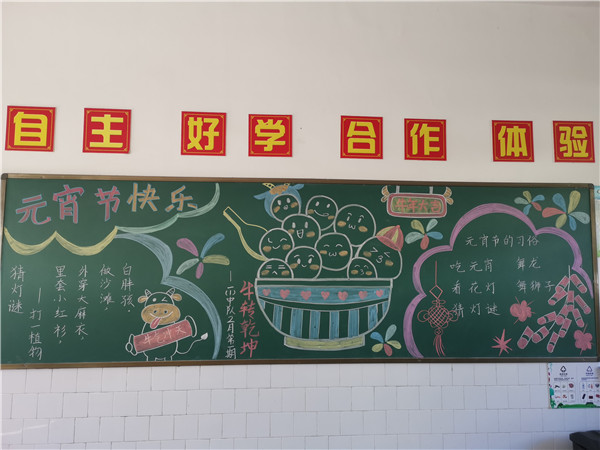 自主 好学 合作 体验
元宵节快乐
白胖孩，
做沙滩，
外穿大麻衣，
里套小红衫，
——打一植物
猜灯谜
牛气冲天
牛转乾坤
元宵节的习俗
吃元宵 舞龙
看花灯 舞狮子
猜灯谜